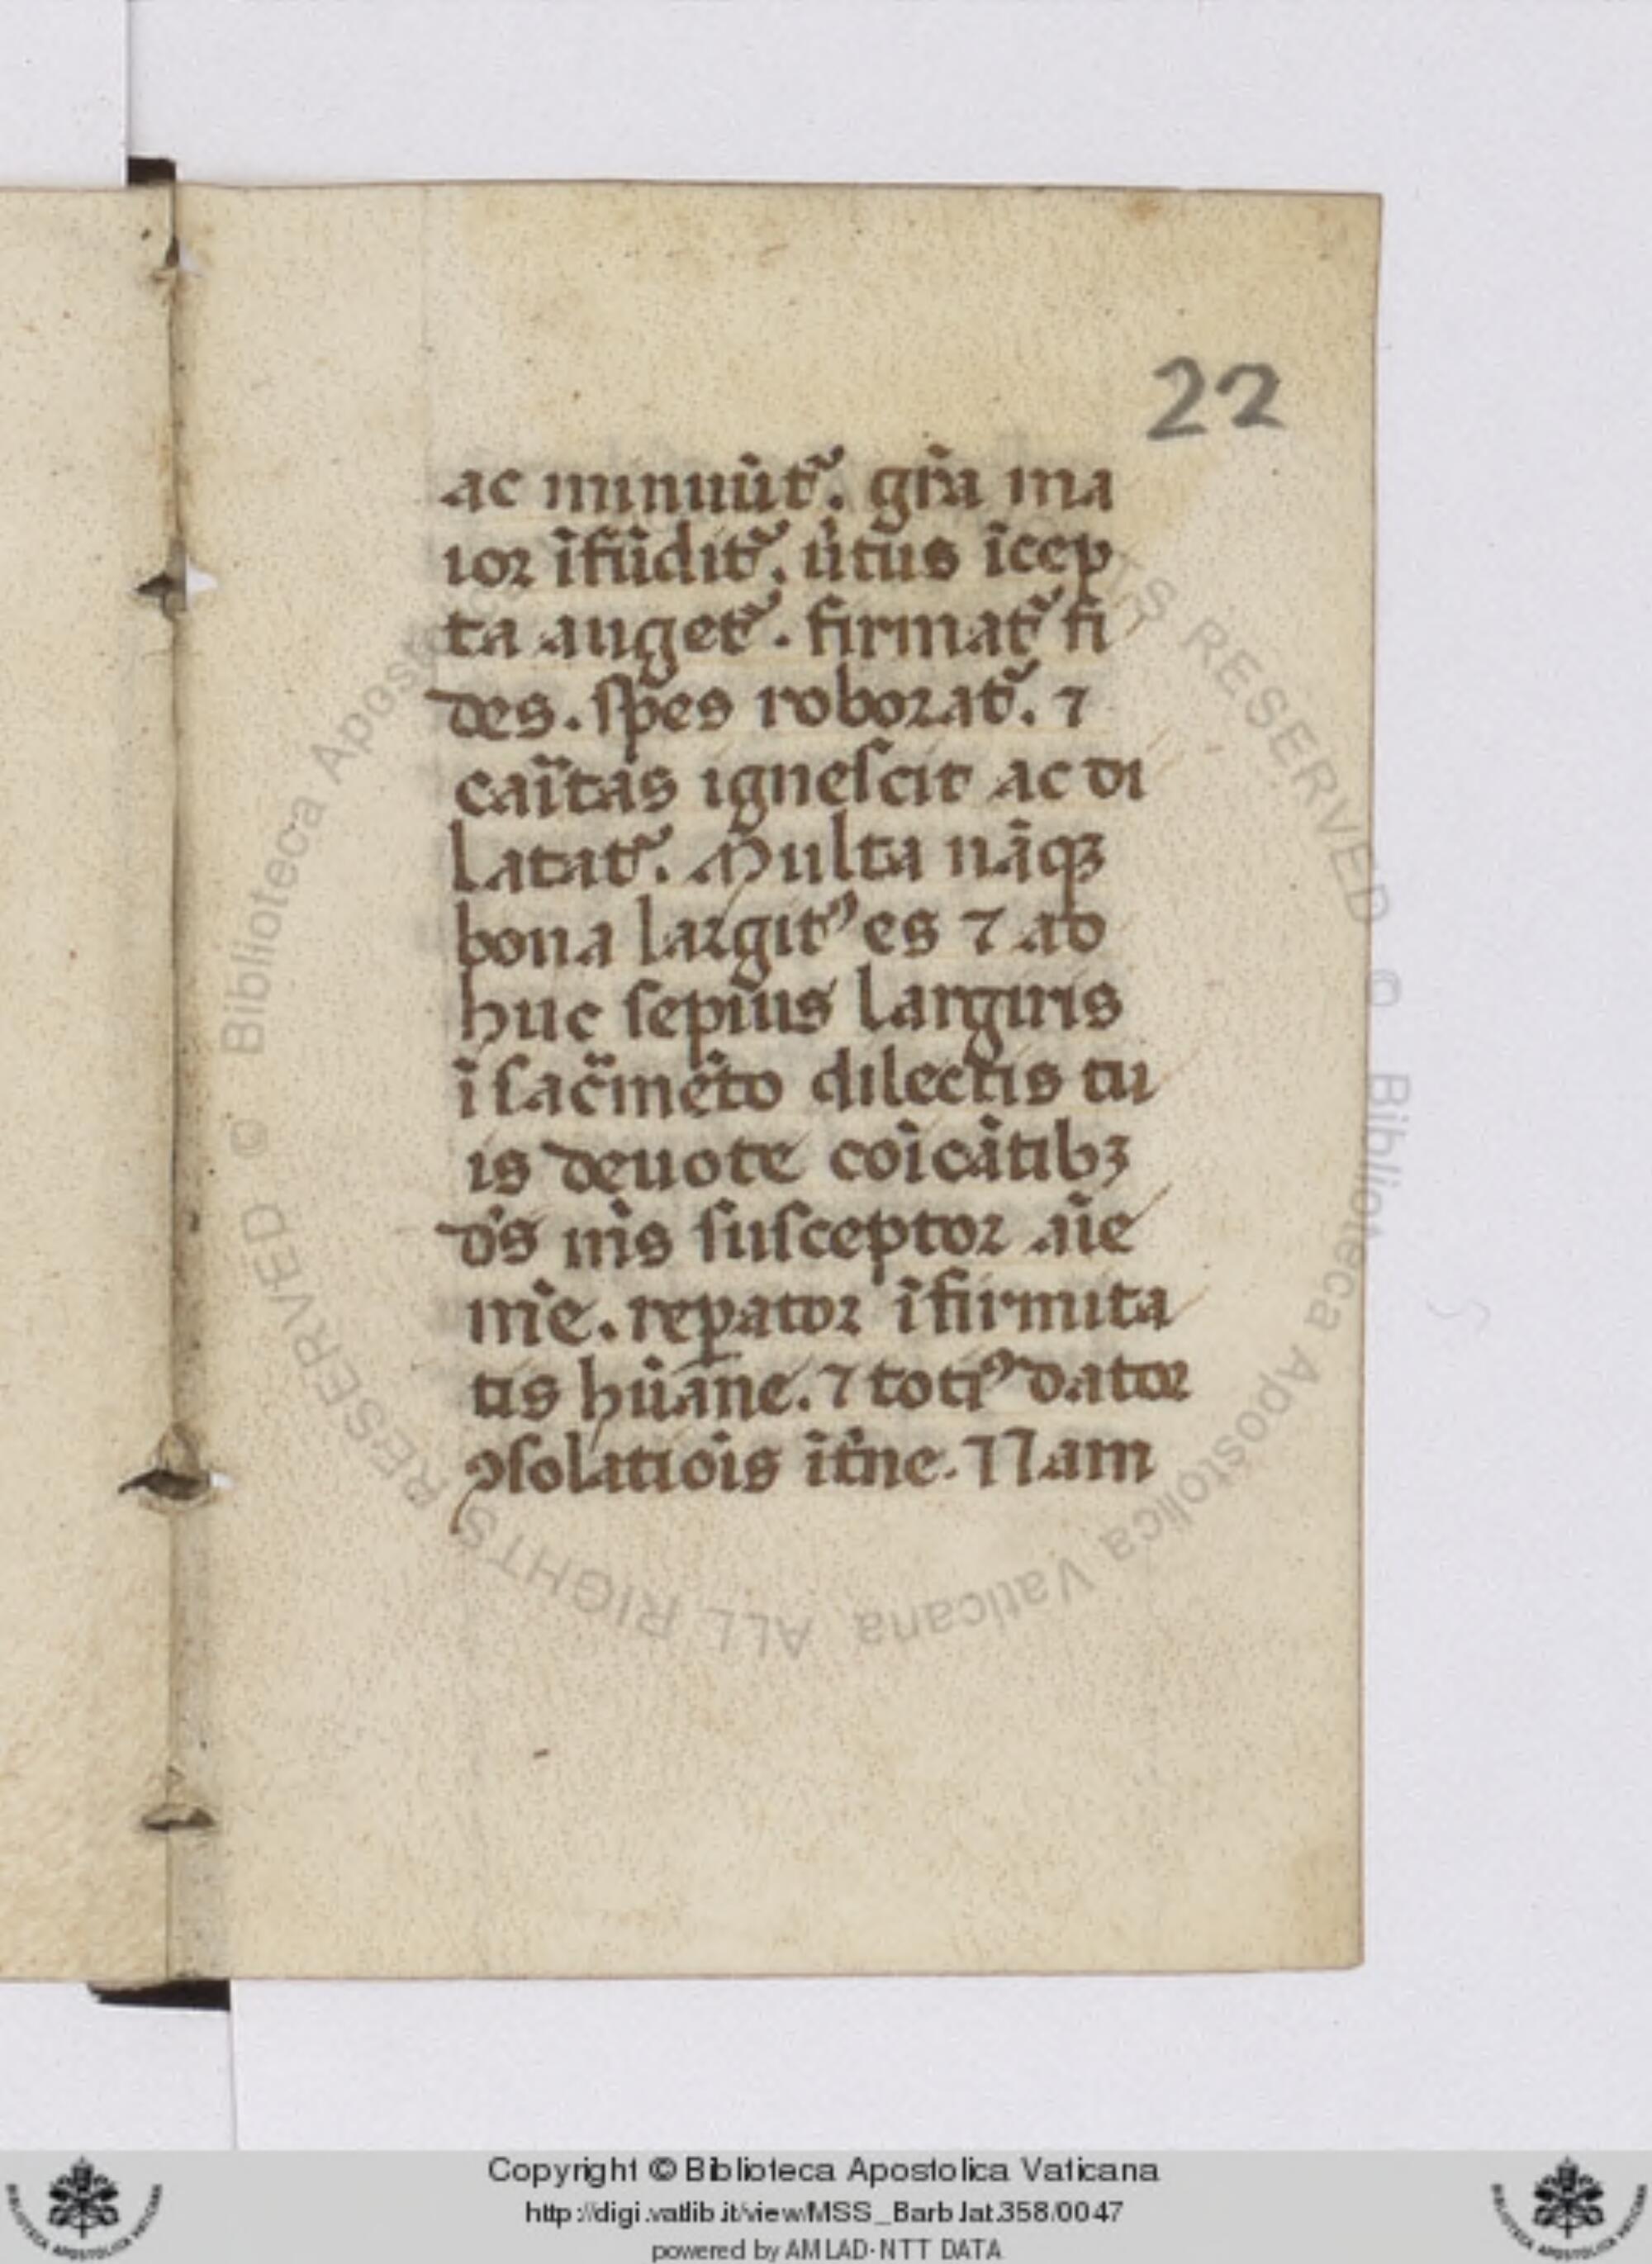 22
ac minuūt᷑. gr̄a ma
ior īfūdit᷑. ūtus īcep
ta auget᷑. firmat᷑ fi
des. spes roborat᷑. ⁊
cār̄itas ignescit ac di
latat᷑. Multa nāqꝫ
bona largitꝰ es ⁊ ad
huc sepius largiris
ī sac̄mēto dilectis tu
is deuote coīcātibꝫ
ds̄ ms̄ susceptor aīe
mē. rep̄ator īfirmita
tis hūāne. ⁊ totiꝰ dator
ꝯsolatiōis īt̄ne. Nam
© Biblioteca Apostolica Vaticana ALL RIGHTS RESERVED © Biblioteca Apostolica Vaticana ALL RIGHTS RESERVED
Copyright © Biblioteca Apostolica Vaticana
http://digi.vatlib.it/view/MSS_Barb.lat.358/0047
powered by AMLAD-NTT DATA